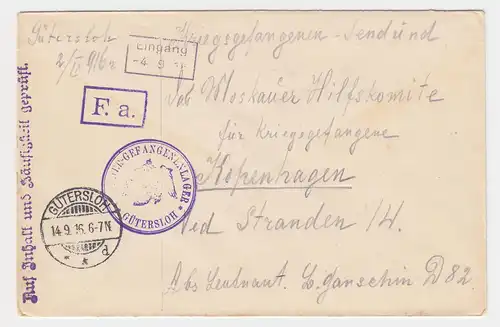 Gütersloh
2/IX 916 r
Eingang
-4. 9
Kriegsgefangenen-Sendund
F. a.
Das Moskauer Hilfskomite
für Kriegsgefangene
Kopenhagen
Ved Stranden 14.
Abs. Leutnant. L. Ganschin D 82.
Auf Inhalt und Zulässigkeit geprüft.
GEFANGENENLAGER
* GÜTERSLOH *
GÜTERSLOH
14.9.16.6-7N.
* * d